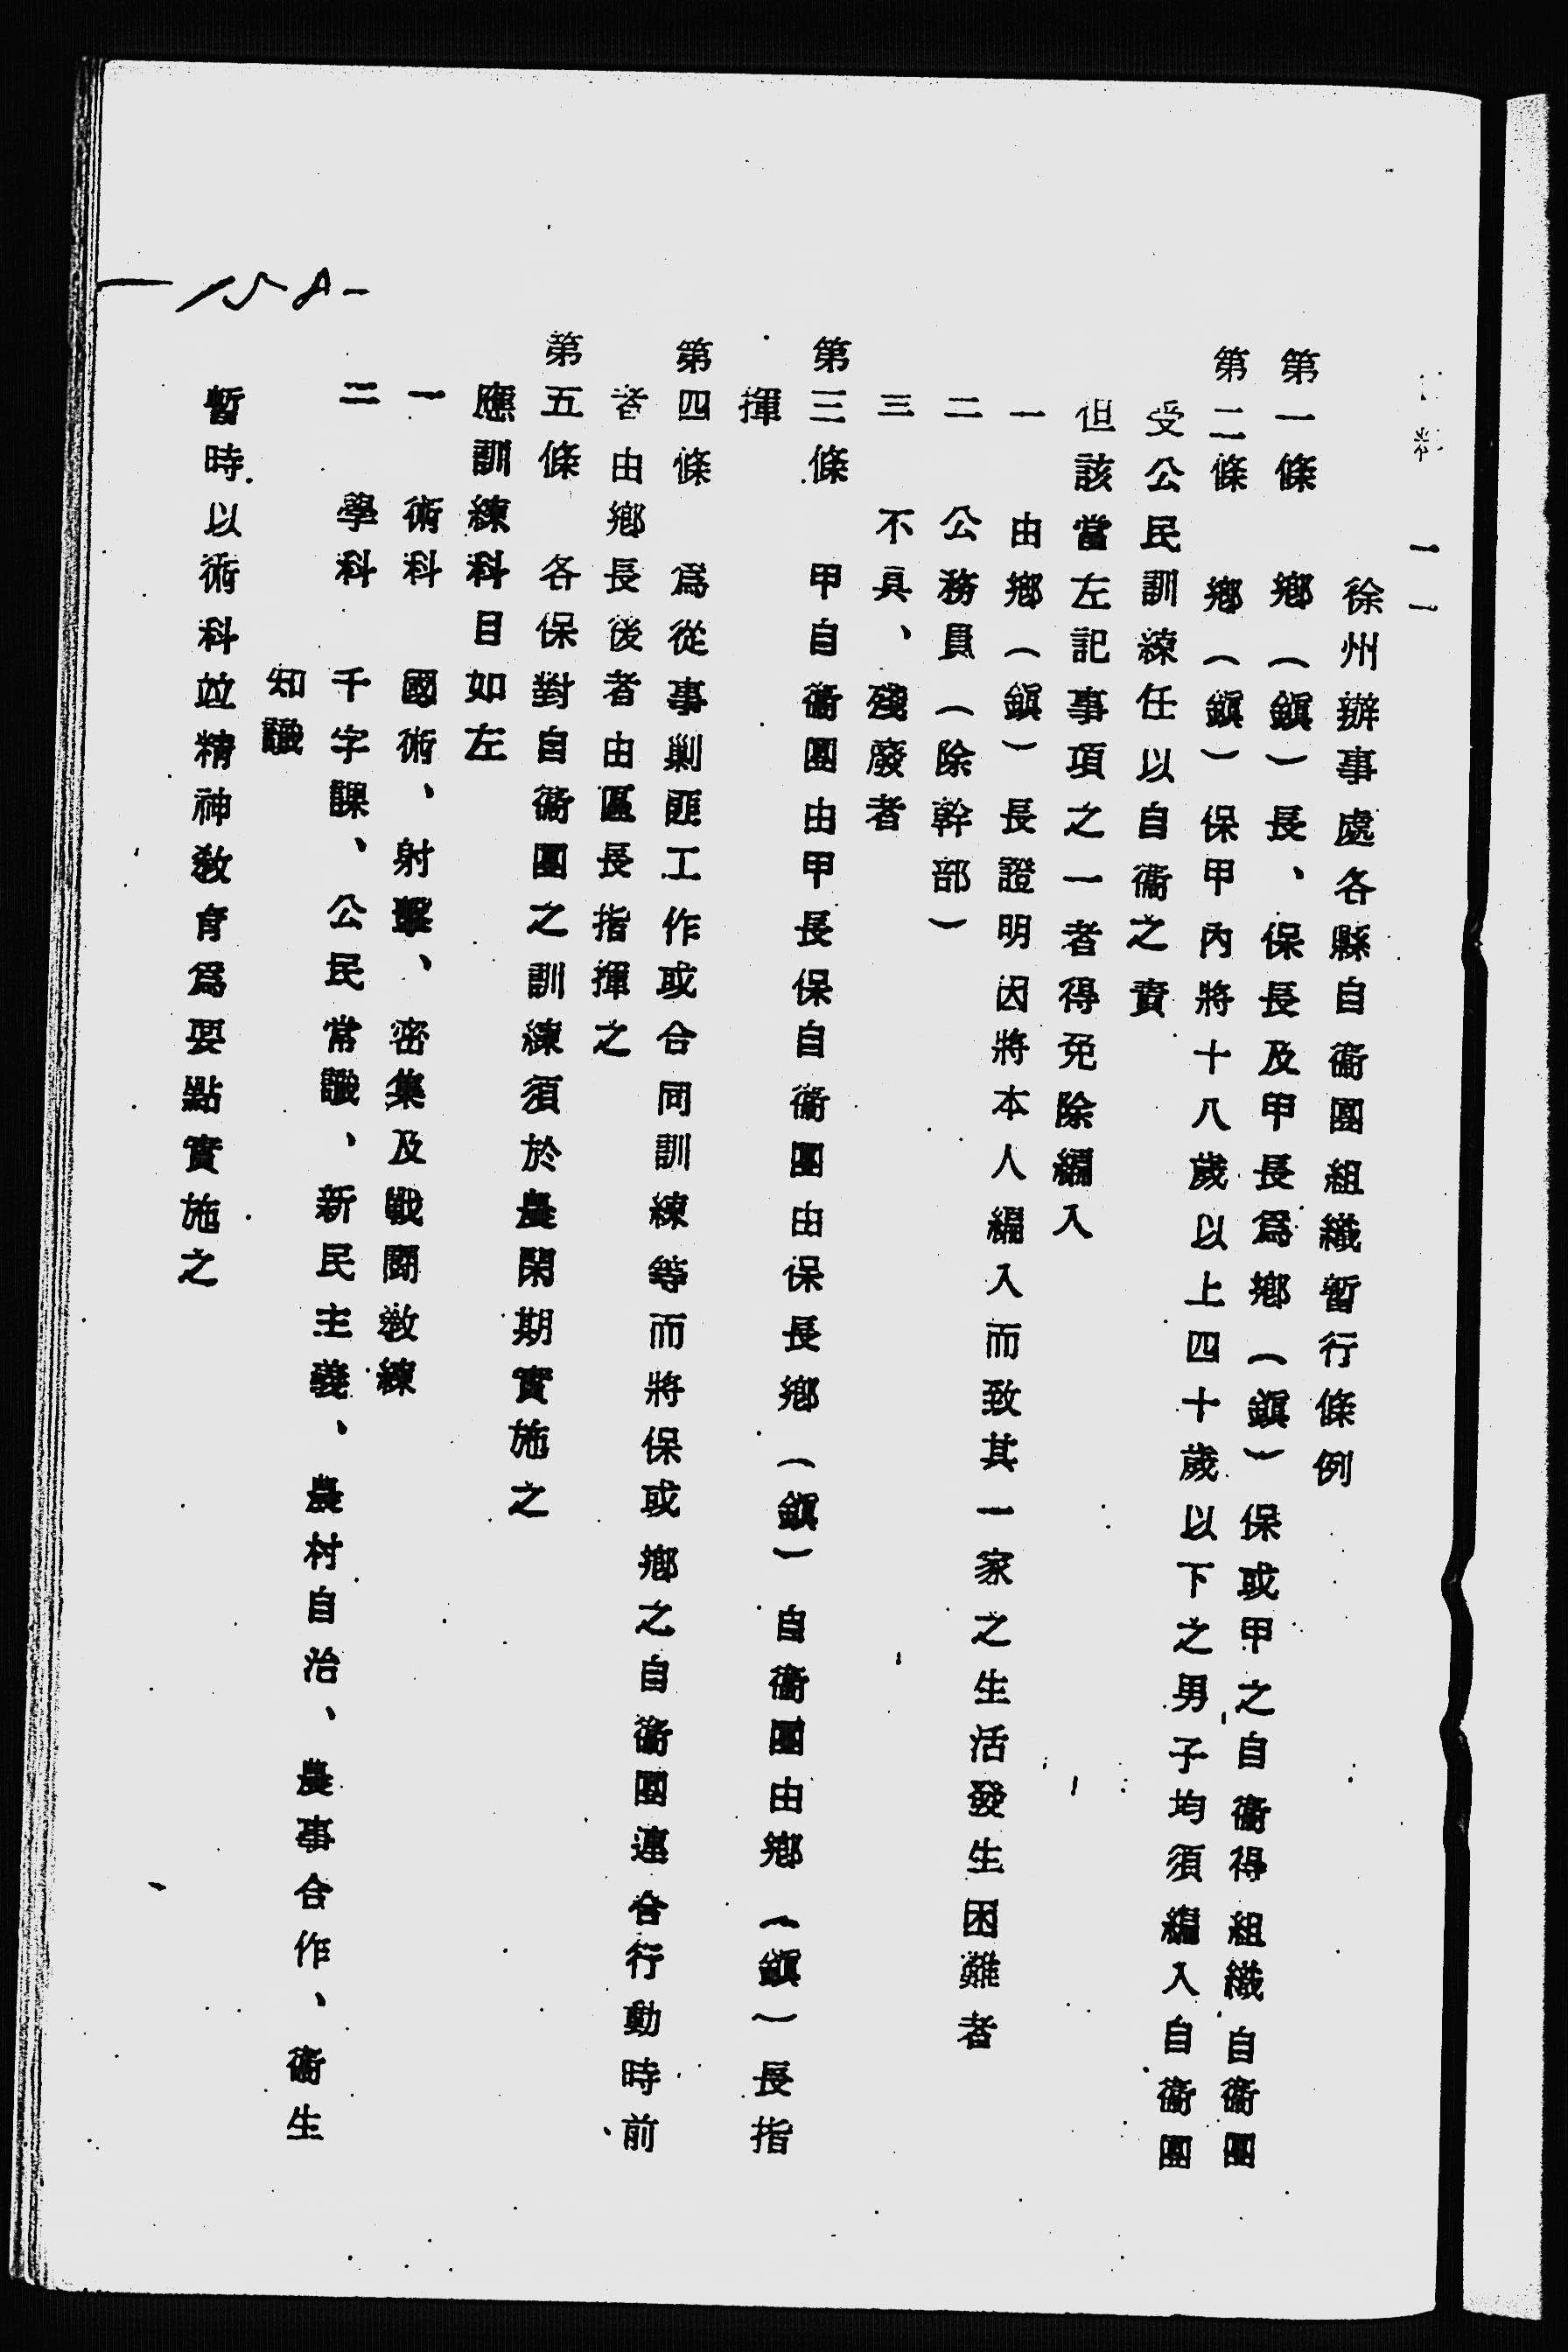 料 一一
徐州辦事處各縣自衞團組織暫行條例
第一條 鄕（鎭）長、保長及甲長爲鄕（鎭）保或甲之自衞得組織自衞團
第二條 鄕（鎭）保甲內將十八歲以上四十歲以下之男子均須編入自衞團
受公民訓練任以自衞之責
但該當左記事項之一者得免除編入
一 由鄕（鎭）長證明因將本人編入而致其一家之生活發生困難者
二 公務員（除幹部）
三 不具、殘廢者
第三條 甲自衞團由甲長保自衞團由保長鄕（鎭）自衞團由鄕（鎭）長指
揮
第四條 爲從事剿匪工作或合同訓練等而將保或鄕之自衞團連合行動時前
者由鄕長後者由區長指揮之
第五條 各保對自衞團之訓練須於農閑期實施之
應訓練科目如左
一 術科 國術、射擊、密集及戰鬪敎練
二 學科 千字課、公民常識、新民主義、農村自治、農事合作、衞生
知識
暫時以術科竝精神敎育爲要點實施之
—158—